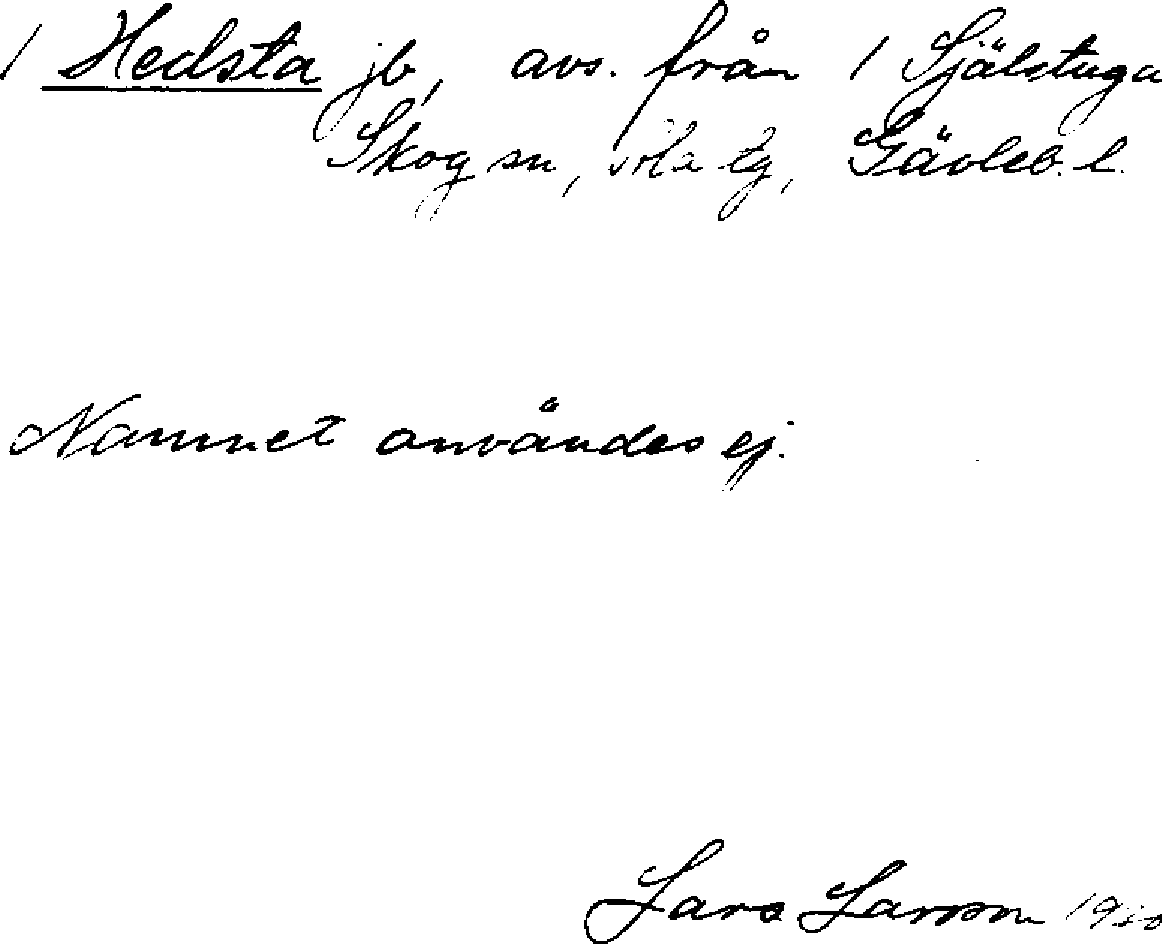 1 Hedsta jb, avs. från 1 Själstuga
Skog sn, tg, Gävleb. l.
Namnet användes ej.
Lars Larsson